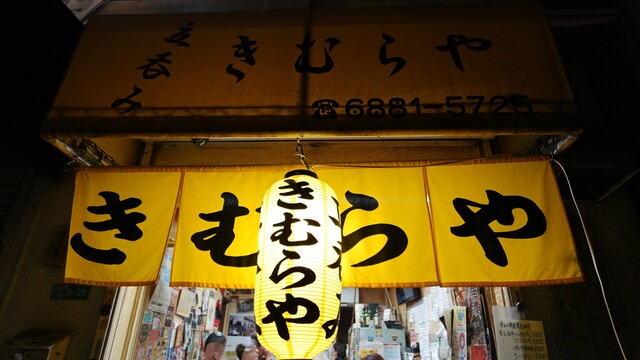 立呑み
きむらや
☎6881-5725
きむらや
きむらや